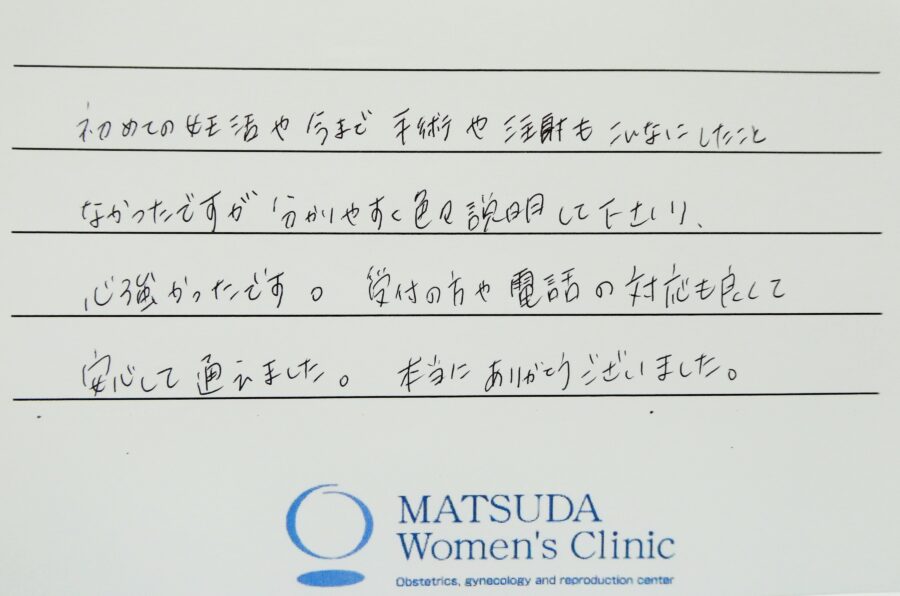 初めての妊活や今まで手術や注射もこんなにしたこと
なかったですが分かりやすく色々説明して下さり、
心強かったです。受付の方や電話の対応も良くて
安心して通えました。本当にありがとうございました。
MATSUDA
Women's Clinic
Obstetrics, gynecology and reproduction center